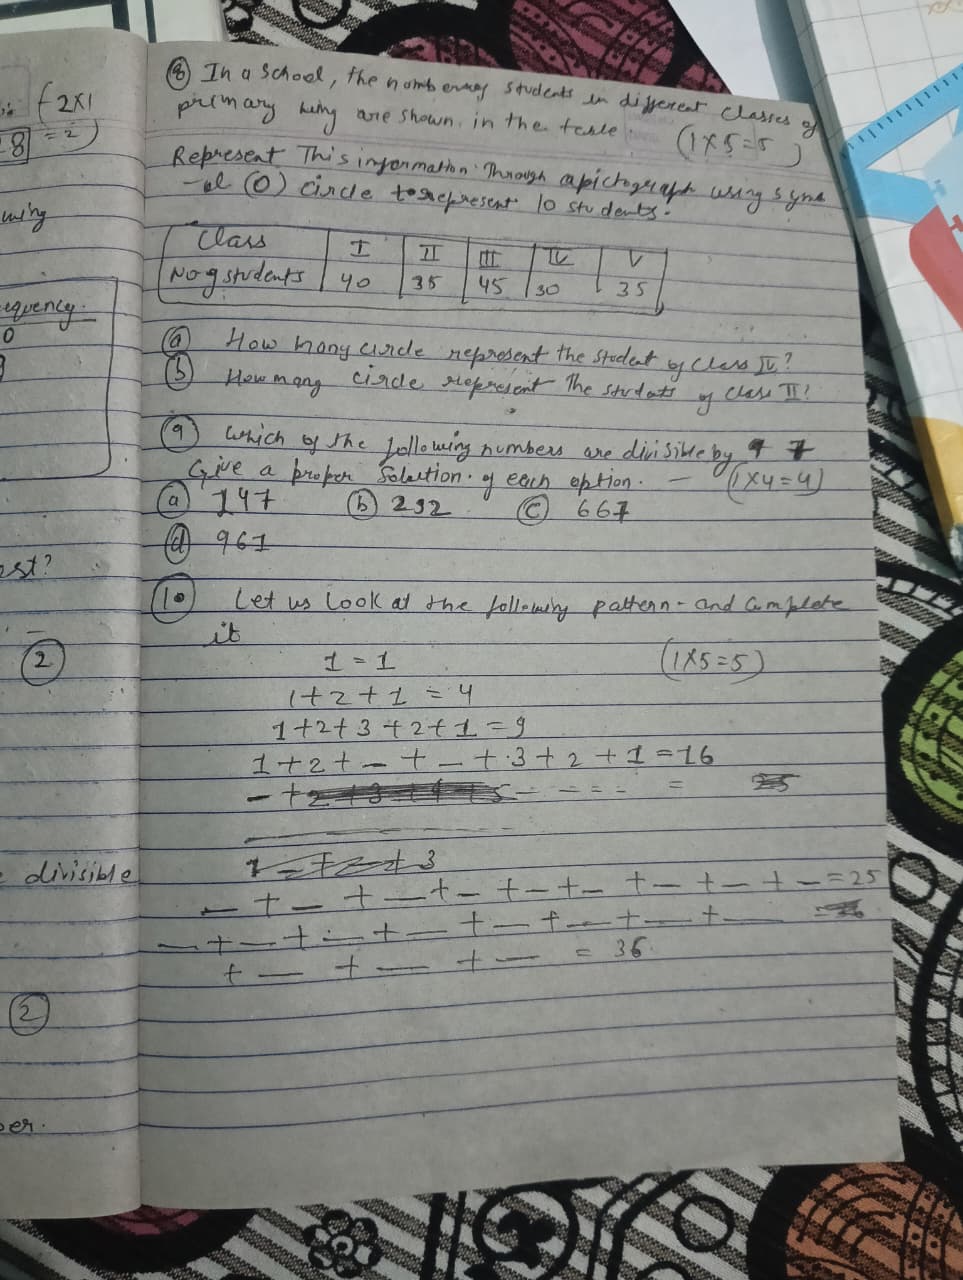 (2x1
= 2)
8
wing
equency.
0
est?
2
divisible
2
ber.
⑧ In a School, the nomber of students in different classes of
primary wing are shown. in the table (1x5=5)
Represent This information Through a pictograph using symb
-ol (O) circle to represent 10 students.
Class I II III IV V
No of students 40 35 45 30 35
ⓐ How many circle represent the student of Class IV?
ⓑ How many circle represent the students of class II?
⑨ Which of the following numbers are divisible by 7
Give a proper Solution. of each option. - (1x4=4)
ⓐ 147 ⓑ 232 ⓒ 667
ⓓ 961
⑩ Let us look at the following pattern - and Complete
it
1 = 1 (1x5=5)
1+2+1 = 4
1+2+3+2+1=9
1+2+ _ + _ + 3 + 2 + 1 = 16
_ + _ + _ + _ + _ + _ + _ + _ + _ = 25
_ + _ + _ + _ + _ + _ + _ + _
+ _ + _ + _ = 36